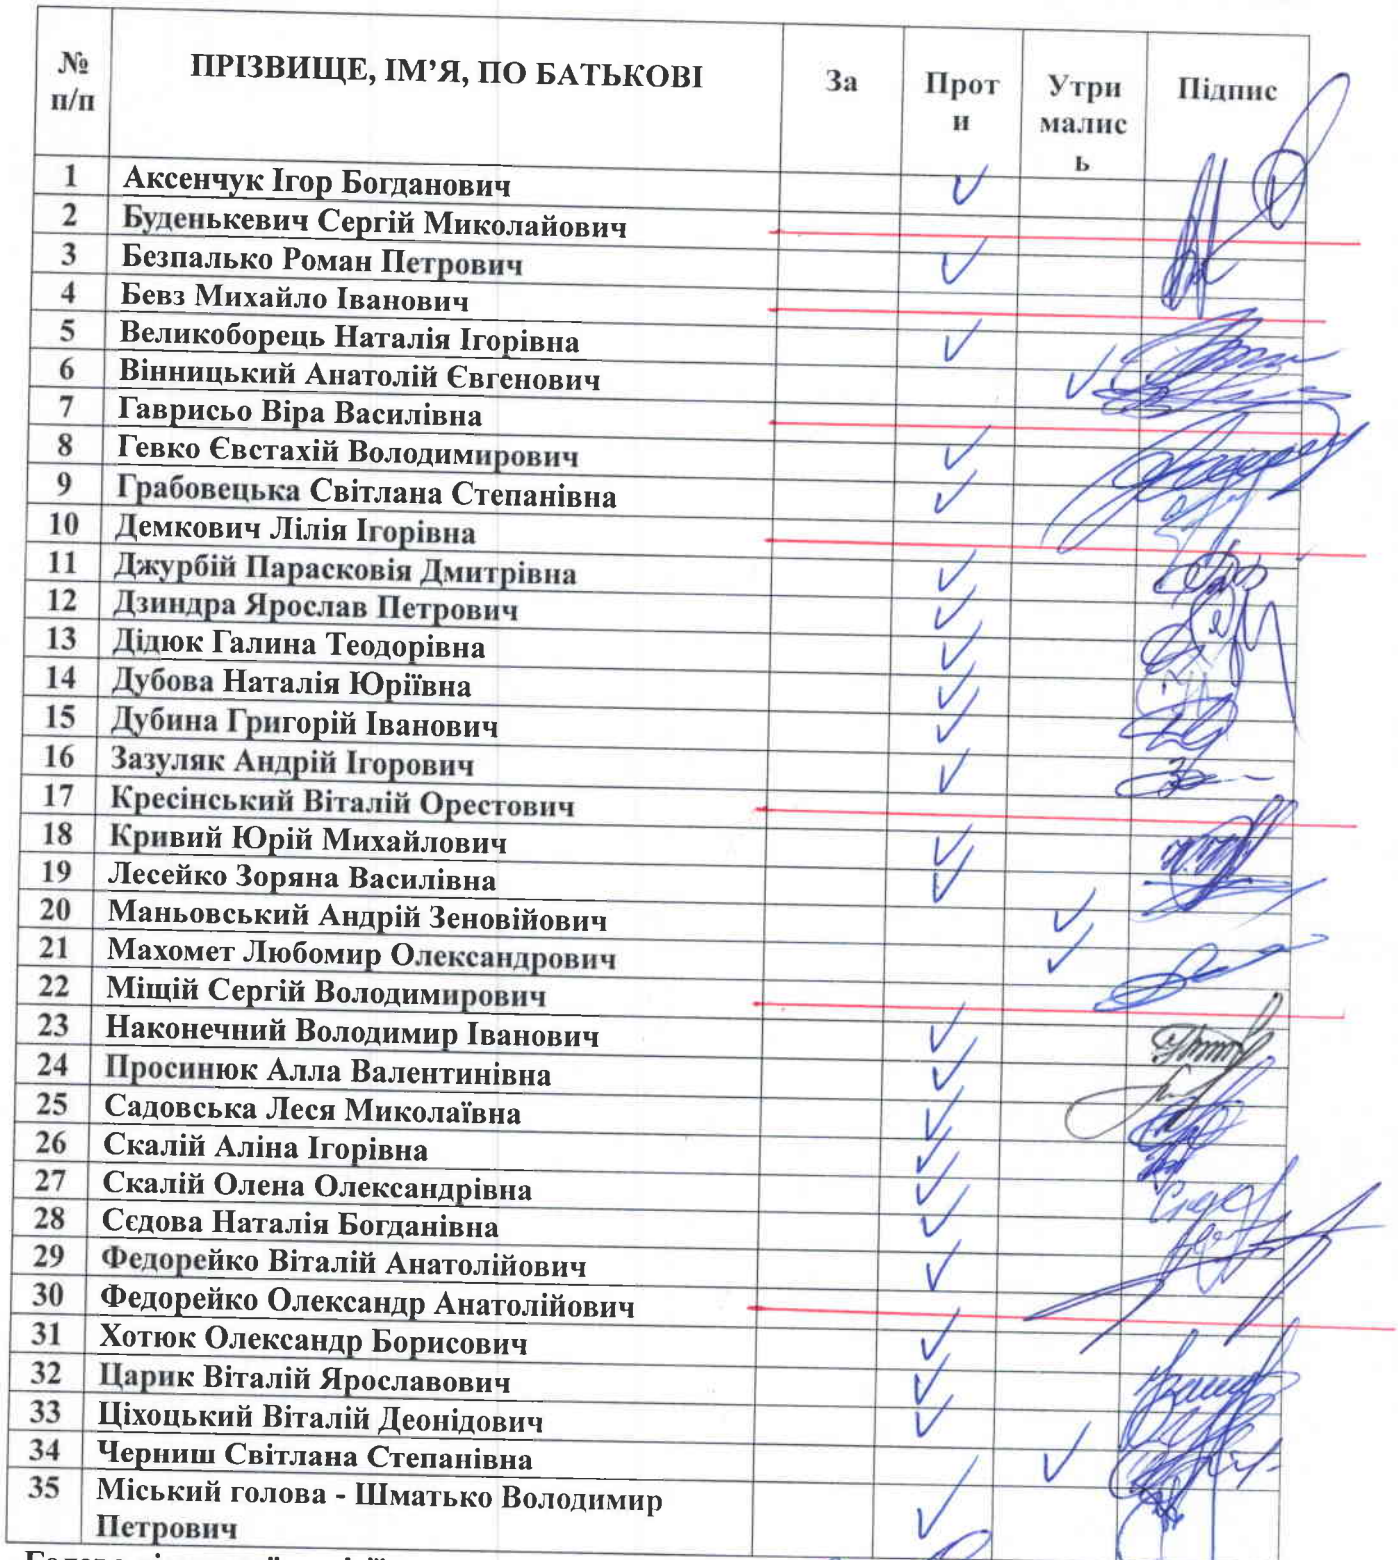 № п/п ПРІЗВИЩЕ, ІМ’Я, ПО БАТЬКОВІ За Проти УтрималисЬ Підпис
1 Аксенчук Ігор Богданович ✓
2 Буденькевич Сергій Миколайович
3 Безпалько Роман Петрович ✓
4 Бевз Михайло Іванович
5 Великоборець Наталія Ігорівна ✓
6 Вінницький Анатолій Євгенович ✓
7 Гаврисьо Віра Василівна
8 Гевко Євстахій Володимирович ✓
9 Грабовецька Світлана Степанівна ✓
10 Демкович Лілія Ігорівна
11 Джурбій Парасковія Дмитрівна ✓
12 Дзиндра Ярослав Петрович ✓
13 Дідюк Галина Теодорівна ✓
14 Дубова Наталія Юріївна ✓
15 Дубина Григорій Іванович ✓
16 Зазуляк Андрій Ігорович ✓
17 Кресінський Віталій Орестович
18 Кривий Юрій Михайлович ✓
19 Лесейко Зоряна Василівна ✓
20 Маньовський Андрій Зеновійович ✓
21 Махомет Любомир Олександрович ✓
22 Міщій Сергій Володимирович
23 Наконечний Володимир Іванович ✓
24 Просинюк Алла Валентинівна ✓
25 Садовська Леся Миколаївна ✓
26 Скалій Аліна Ігорівна ✓
27 Скалій Олена Олександрівна ✓
28 Сєдова Наталія Богданівна ✓
29 Федорейко Віталій Анатолійович ✓
30 Федорейко Олександр Анатолійович
31 Хотюк Олександр Борисович ✓
32 Царик Віталій Ярославович ✓
33 Ціхоцький Віталій Деонідович ✓
34 Черниш Світлана Степанівна ✓
35 Міський голова - Шматько Володимир ✓
Петрович